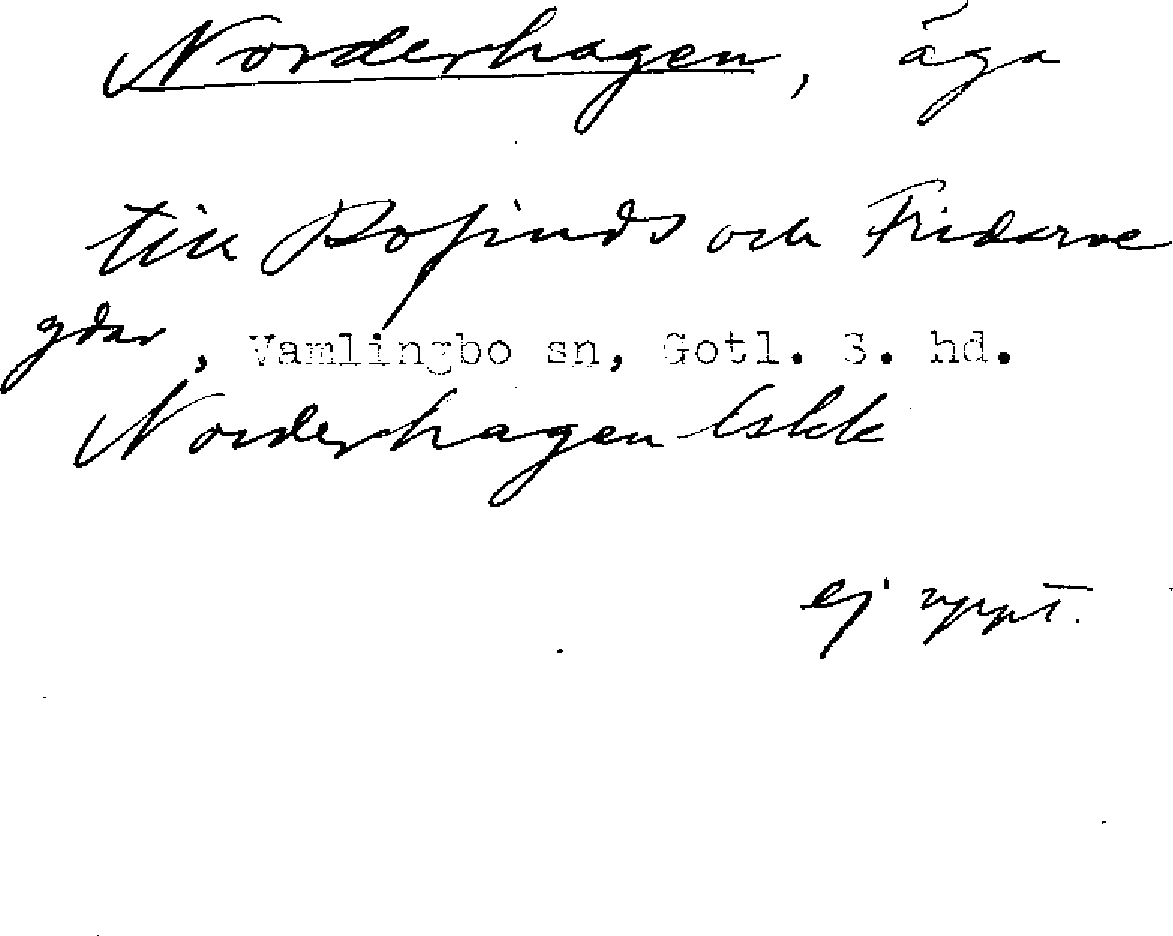 Norderhagen, äga
till Rofinds och Fridarve
gdar, Vamlingbo sn, Gotl. S. hd.
Norderhagen Lskk
ej uppt.